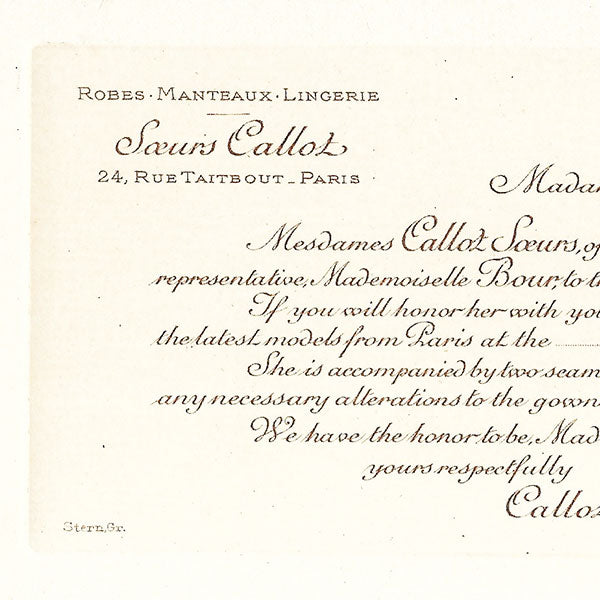 ROBES · MANTEAUX · LINGERIE
Sœurs Callot
24, RUE TAITBOUT _ PARIS
Madam
Mesdames Callot Sœurs, of
representative, Mademoiselle Bour, to th
If you will honor her with you
the latest models from Paris at the
She is accompanied by two seam
any necessary alterations to the gown
We have the honor to be, Mad
yours respectfully
Callot
Stern, Gr.